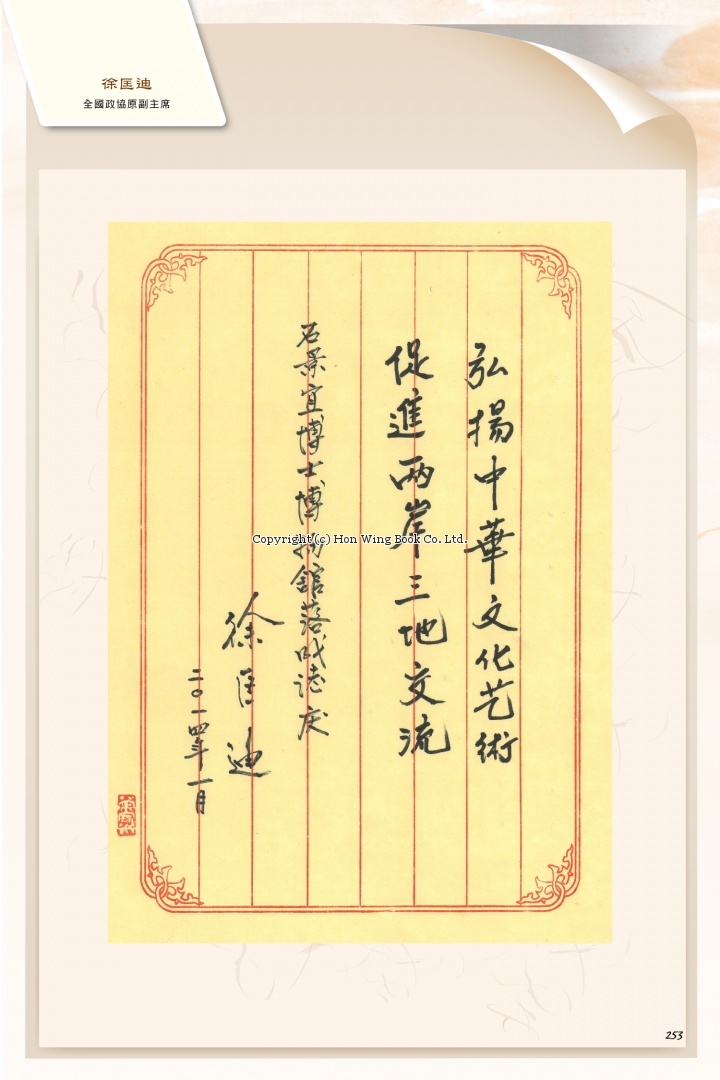 徐匡迪
全國政協原副主席
弘揚中華文化艺術
促進两岸三地交流
石景宜博士博物館落成誌庆
徐匡迪
二〇一四年一月
Copyright (c) Hon Wing Book Co. Ltd.
253